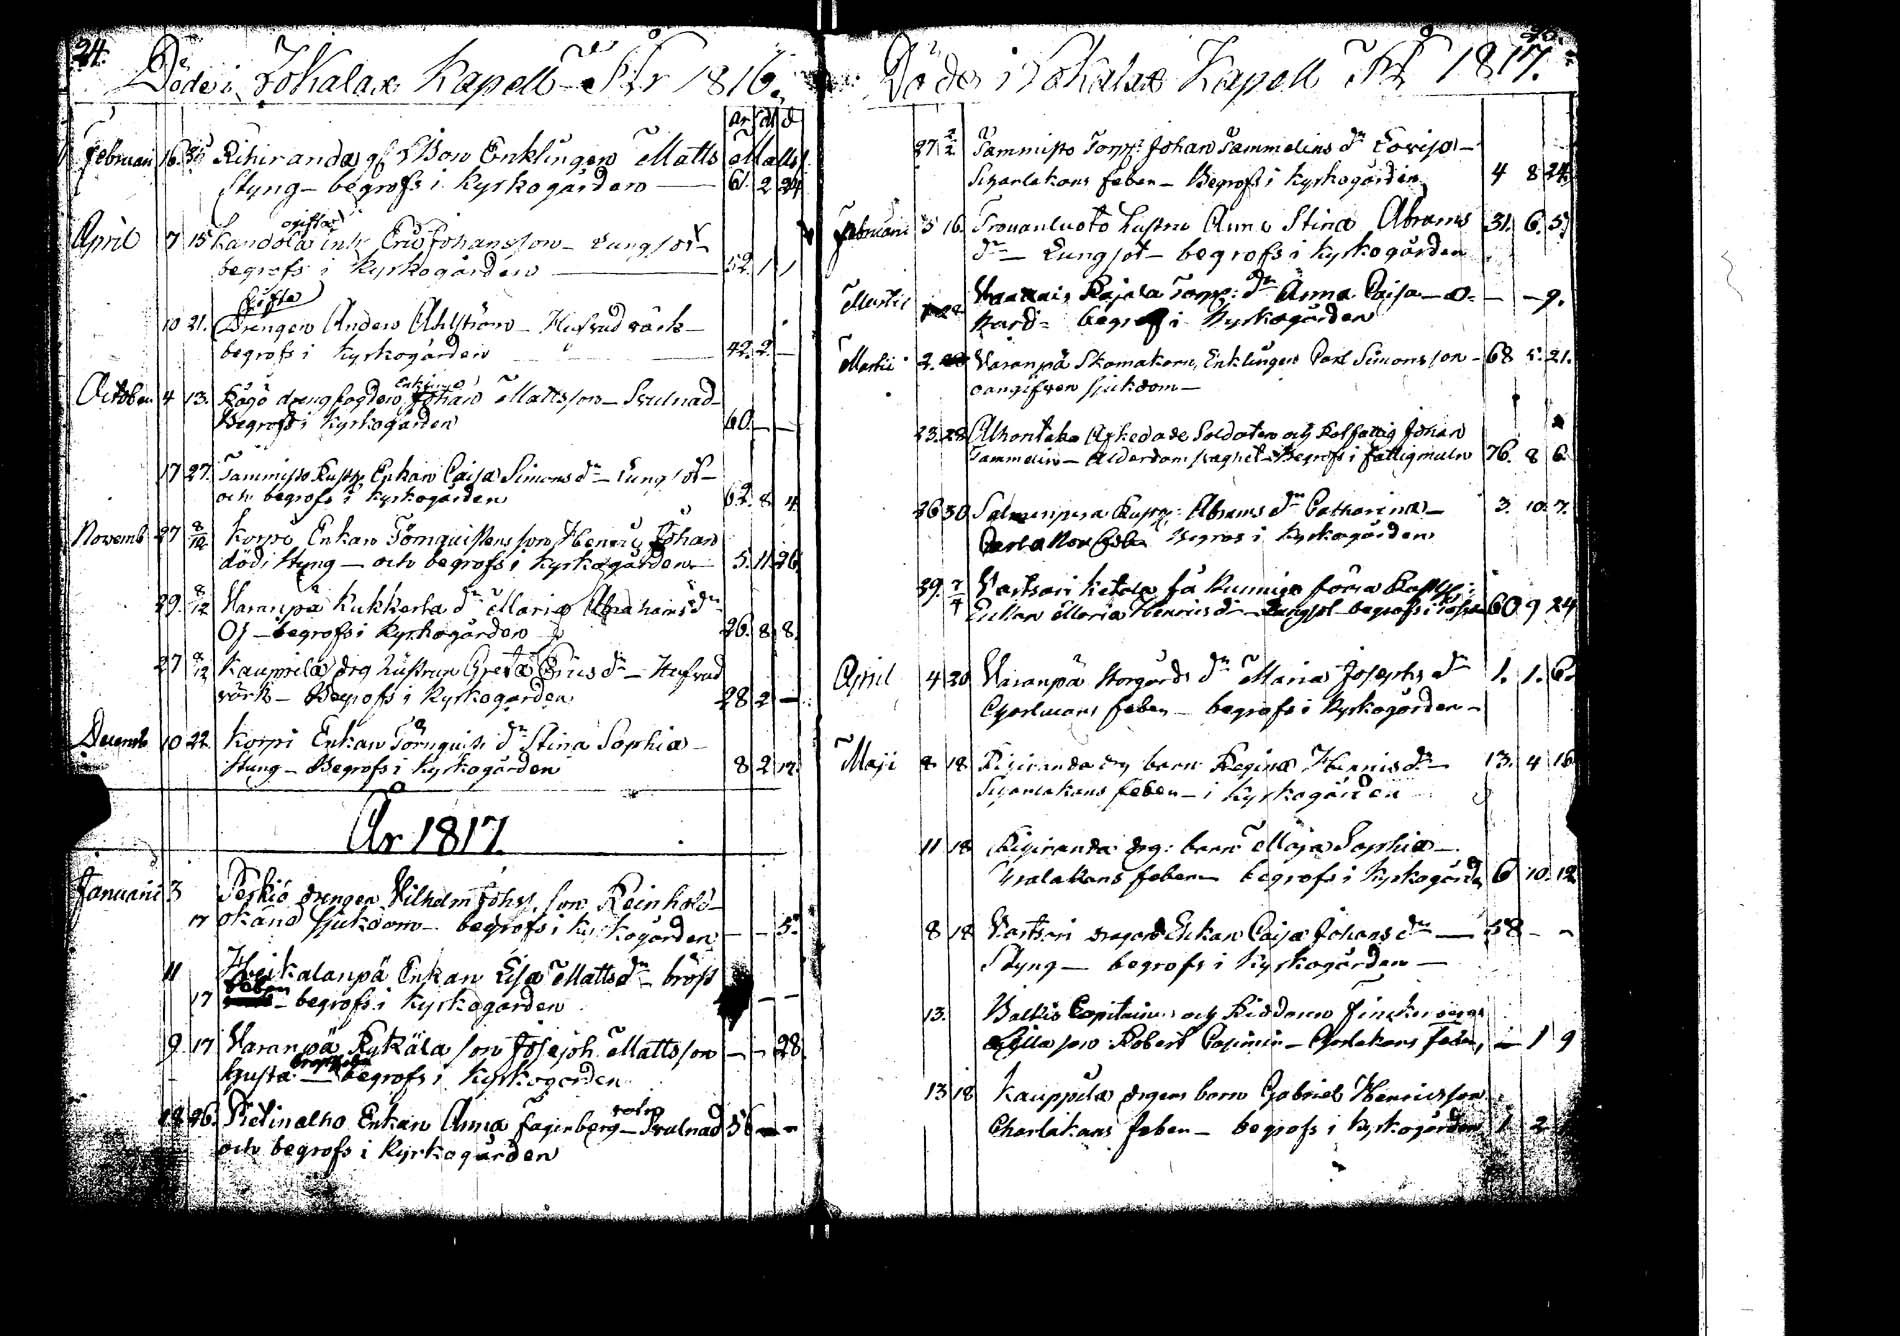 24.
Döde i Jokalax Kapell År 1816.
år m d
Februari 16. Rihiranda Son Enklingen Matts Matts
Styng - begrofs i Kyrkogården 61. 2 24
ogifta
April 7 15 Kandola inh. Eric Johansson - Lungsot -
begrofs i Kyrkogården 52. 1 1
Gifta
10 21. Drengen Anders Ahlström - Hufvud värk -
begrofs i Kyrkogården 42. 2. -
Enkling
October 4 13. Kögö drengfogden Johan Mattsson - Svulnad -
Begrofs i Kyrkogården 60. - -
17 27. Tammisto Enkan Caisa Simons dr - Lungsot -
och begrofs i Kyrkogården 62. 8. 4.
Novemb. 27 8/12 Korpi Enkan Törnquistens son Henric Johan
död i styng - och begrofs i Kyrkogården 5. 11. 26
29. 8/12 Varanpä Kukkerla dr Maria Abrahams dr
begrofs i Kyrkogården 26. 8. 8.
27 8/12 Kauppila drg hustrun Greta Erics dr - Hufvud
värk - Begrofs i Kyrkogården 28 2 -
Decemb 10 22. Korpi Enkan Törnquists dr Stina Sophia -
Stung - Begrofs i Kyrkogården 8 2 17.
År 1817.
Januarii 3 Peskiö drengen Vilhelm Johs. son Reinhold -
17 okänd sjukdom - begrofs i Kyrkogården - - 5.
11 Heikalanpä Enkan Lisa Matts dr - bröst
feber
17 - begrofs i Kyrkogården - -
9. 17 Varanpä Rykälä son Joseph Mattsson - - 28.
Husta - begrofs i Kyrkogården
26. Rietinalho Enkan Anna Fagerberg - Svulnad 56 - -
och begrofs i Kyrkogården
25.
Döde i Jokalax Kapell År 1817.
27 2/2 Tammisto Torp: Johan Sammelins dr Lovisa -
Scharlakans feber - Begrofs i Kyrkogården 4 8 24.
Februarii 5 16. Hustru Anna Stina Abrams 31. 6. 5.
dr - Lungsot - begrofs i Kyrkogården
Martii Rajala Torp: dr Anna Caisa - - - 9.
begrofs i Kyrkogården
Martii 2. Varanpä Skomakaren, Enklingen Carl Simonsson - 68 5. 21.
oangifven sjukdom -
23. 28 Alhontaka Afskedade Soldaten och Rotfattig Johan
Tammelin - Ålderdoms svaghet - Begrofs i fattigmuln 76. 8 6.
26 30. Salmenpera Abrams dr Catharina - 3. 10. 7.
Begrofs i Kyrkogården
29. 7/4 Vartsari Ketola
Enkan Maria Henrics dr - Lungsot - begrofs i 60. 9 24
April 4 20 Varanpä Storgårds dr Maria Josephs dr 1. 1. 6.
feber - begrofs i Kyrkogården -
Maji 8. 18 Rihiranda drg barn Regina Henrics dr - 13. 4 16
Scharlakans feber - i Kyrkogården
11 18 Rihiranda drg: barn Maja Sophia -
feber begrofs i Kyrkogården 6 10. 12
8 18 Vartsari Enkan Caisa Johans dr - 58 - -
Styng - begrofs i Kyrkogården -
13. Balkis Capitainen och Riddaren Finckenbergs
lilla son Robert Casimir - feber, - 1 9
13 18 Kauppila drgens barn Gabriel Henricsson
Charlakans feber - begrofs i Kyrkogården 1 2